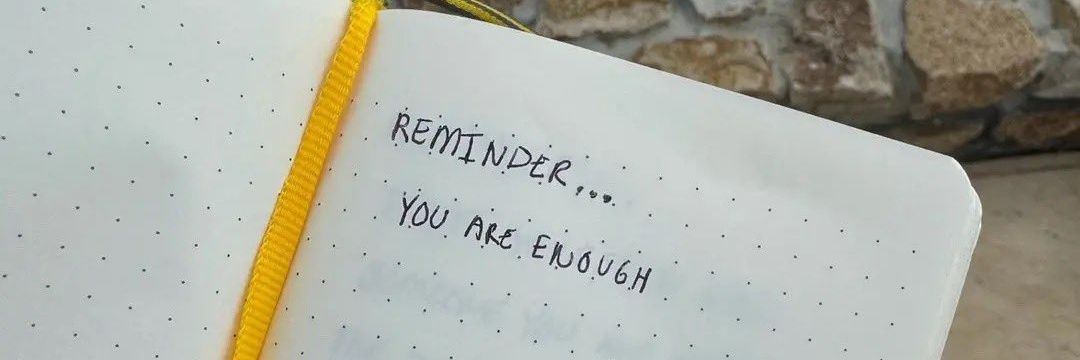 REMINDER...
YOU ARE ENOUGH